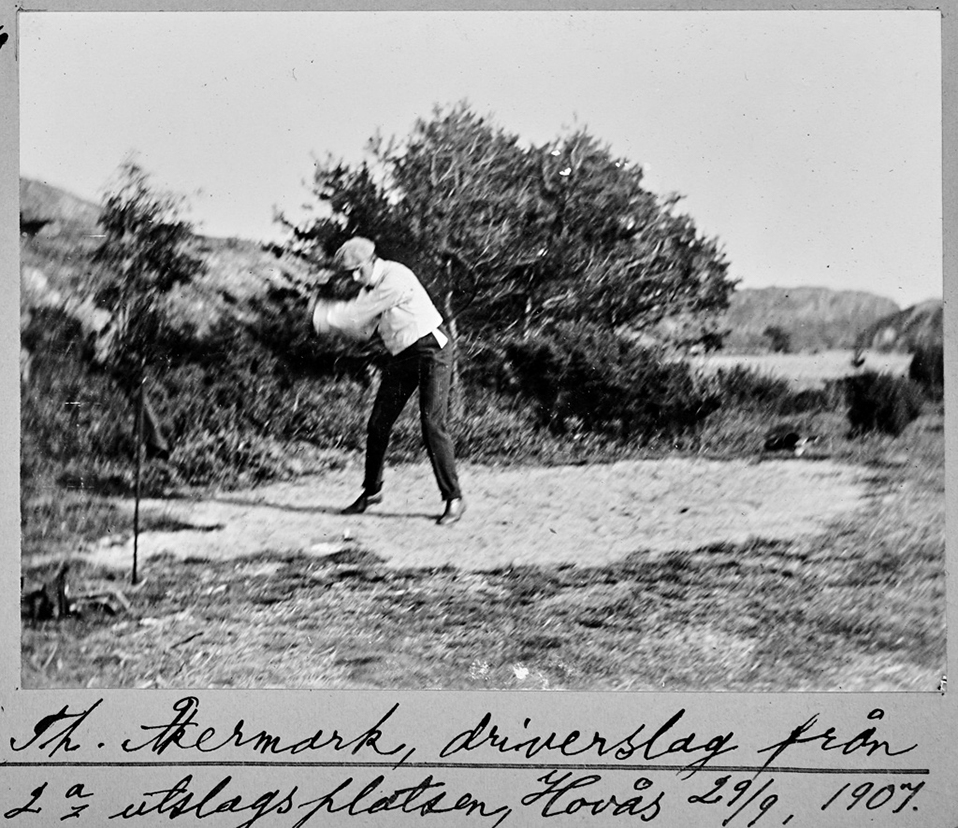 Th. Åkermark, driverslag från
2a utslagsplatsen, Hovås 29/9, 1907.